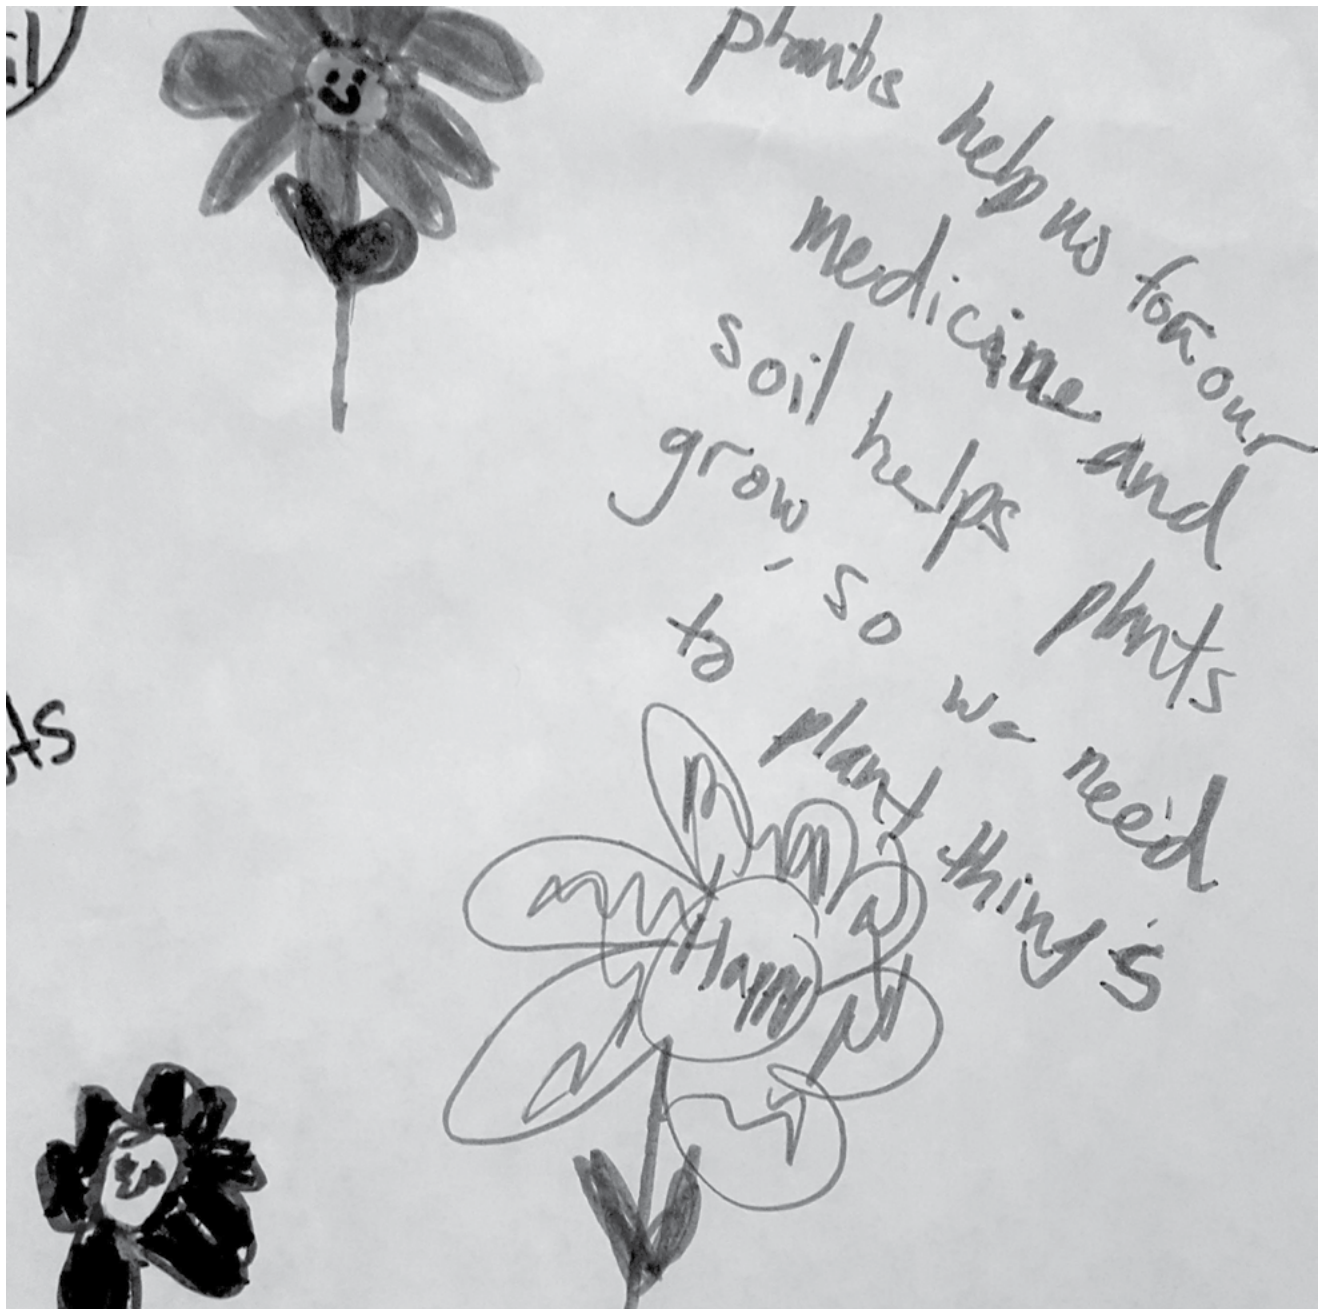 plants help us for our
medicine and
soil helps plants
grow, so we need
to plant thing's
Happy